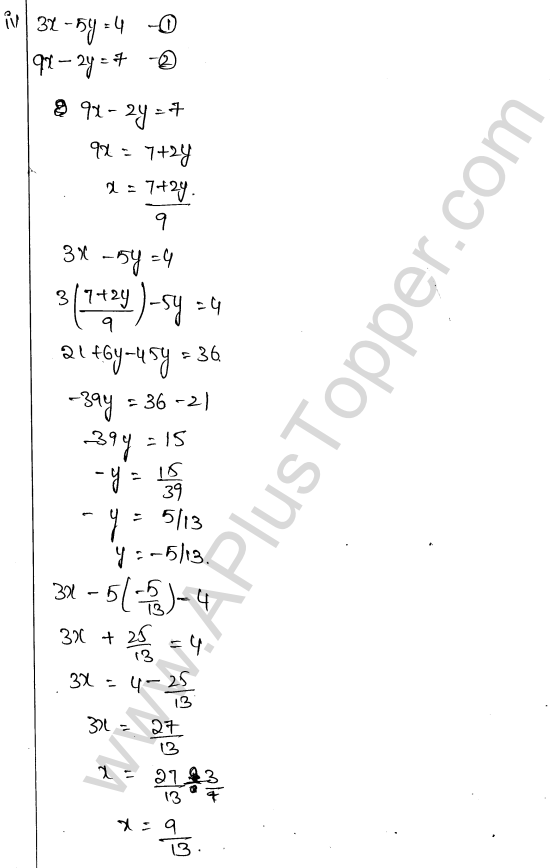 iv) 3x - 5y = 4 - ①
9x - 2y = 7 - ②
9x - 2y = 7
9x = 7+2y
x = 7+2y/9
3x - 5y = 4
3(7+2y/9) - 5y = 4
21 + 6y - 45y = 36
-39y = 36 - 21
-39y = 15
-y = 15/39
-y = 5/13
y = -5/13.
3x - 5(-5/13) - 4
3x + 25/13 = 4
3x = 4 - 25/13
3x = 27/13
x = 27/13
x = 9/13.
www.APlusTopper.com